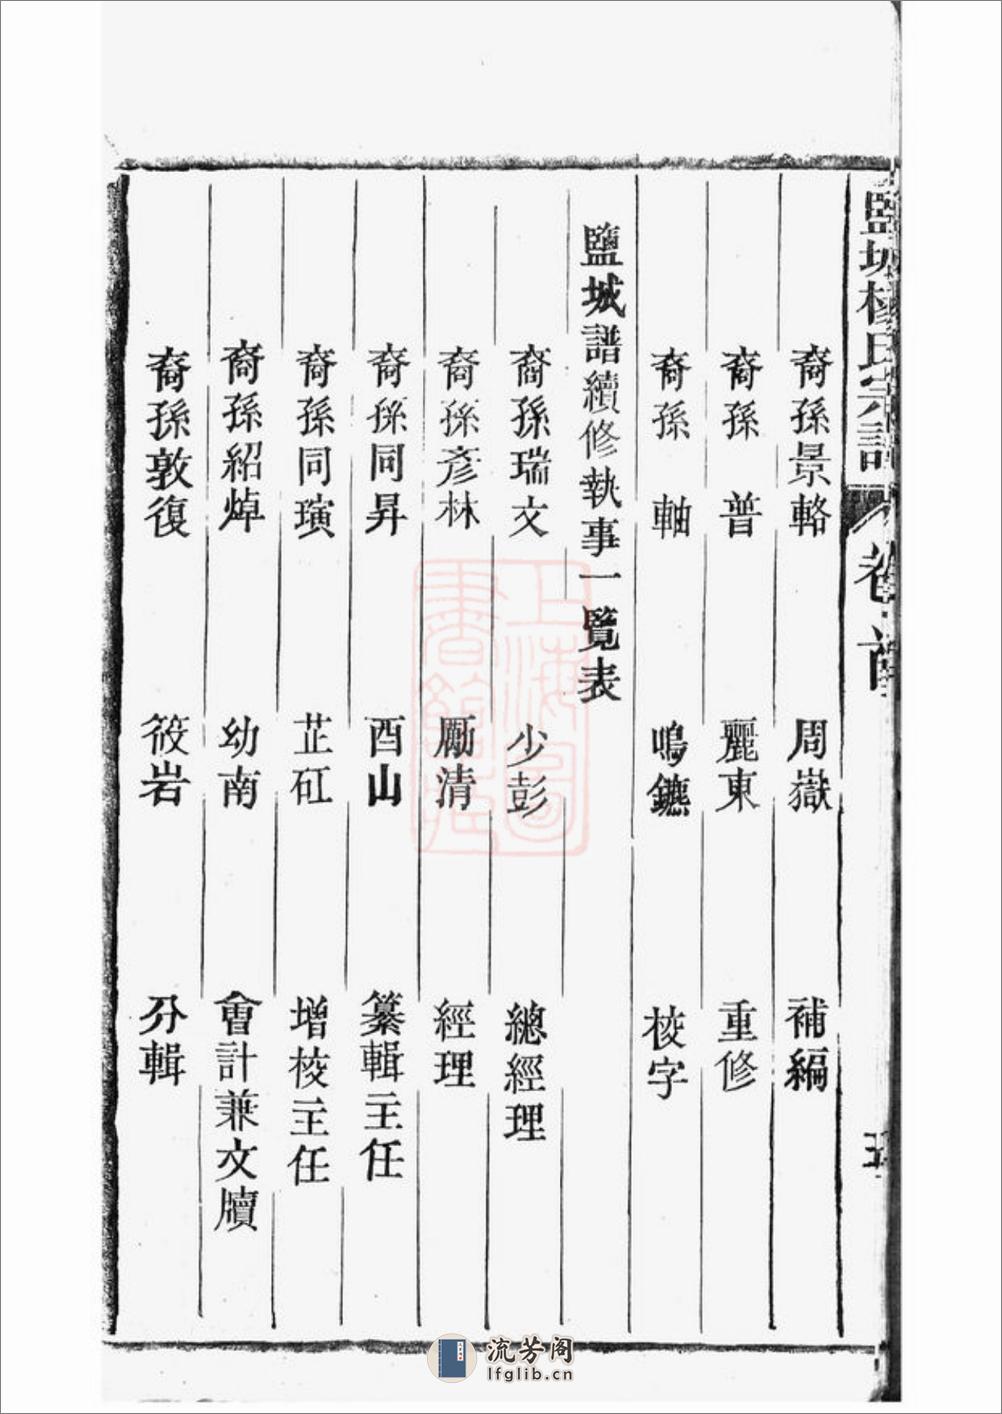 鹽城楊氏宗譜 卷首
裔孫景輅 周嶽 補編
裔孫普 麗東 重修
裔孫軸 鳴鑣 校字
鹽城譜續修執事一覽表
裔孫瑞文 少彭 總經理
裔孫彥林 勵清 經理
裔孫同昇 酉山 纂輯主任
裔孫同璜 芷矼 增校主任
裔孫紹焯 幼南 會計兼文牘
裔孫敦復 筱岩 分輯
上海圖
書館藏
流芳阁
lfglib.cn